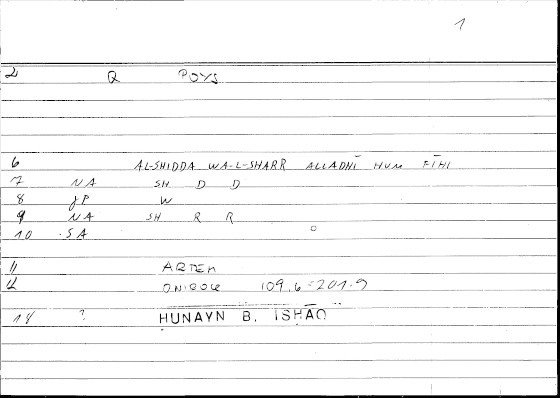 1
2 Q POYS
6 AL-SHIDDA WA-L-SHARR ALLADHĪ HUM FĪHI
7 NA SH D D
8 JP W
9 NA SH R R
10 SA
11 ARTEM
12 ONIROCR 109,6=201.9
14 ? ḤUNAYN B. ISḤĀQ